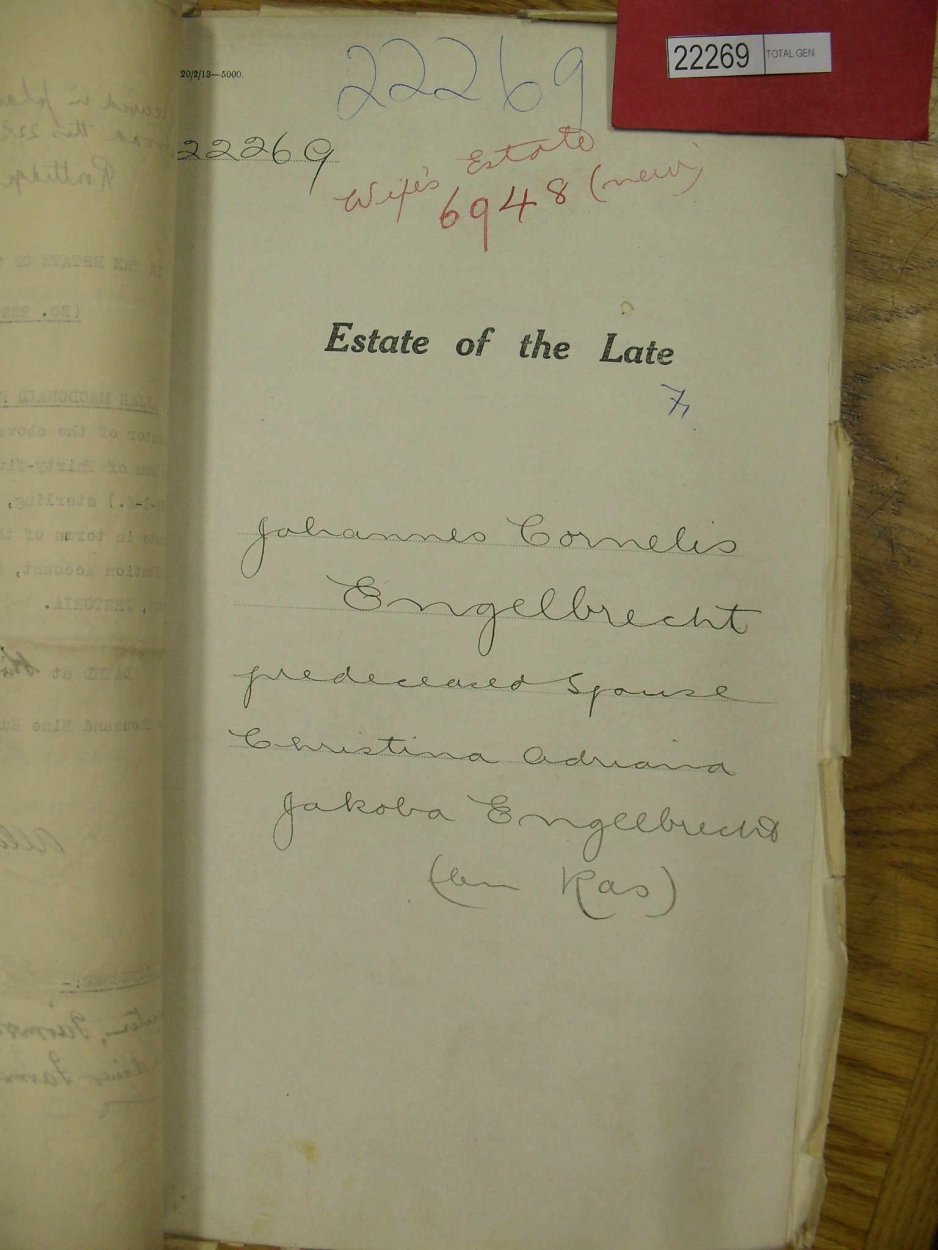 22269 TOTAL GEN
20/2/13—5000.
22269
22269
Wife's Estate
6948 (new)
Estate of the Late
Johannes Cornelis
Engelbrecht
predeceased Spouse
Christina Adriana
Jakoba Engelbrecht
Ras)